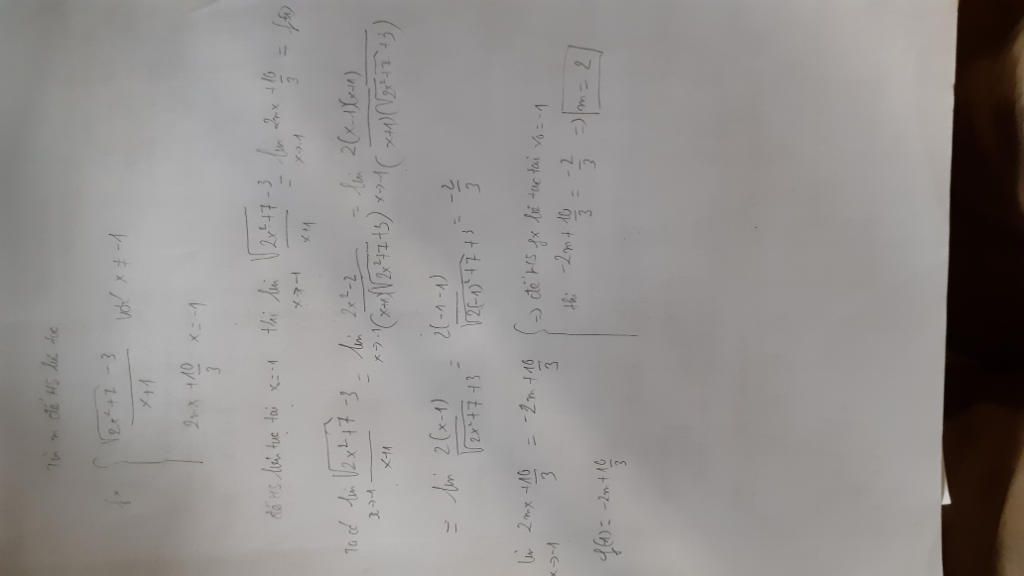 Tìm m để HS liê tục
fx { √2x²+7 - 3 / x+1 với x ≠ -1
2mx + 10/3 x = -1
để HS liên tục tại x = -1 thì lim x→-1 √2x²+7 - 3 / x+1 = lim x→-1 2mx + 10/3 = f(-1)
Ta có lim x→-1 √2x²+7 - 3 / x+1 = lim x→-1 2x²-2 / (x+1)(√2x²+7+3) = lim x→-1 2(x-1)(x+1) / (x+1)(√2x²+7+3)
= lim 2(x-1) / √2x²+7+3 = 2(-1-1) / √2(-1)²+7+3 = -2/3
lim x→-1 2mx + 10/3 = -2m + 10/3
f(-1) = -2m + 10/3
=) để HS fx liê tục tại x₀ = -1
thì -2m + 10/3 = -2/3 =) m = 2